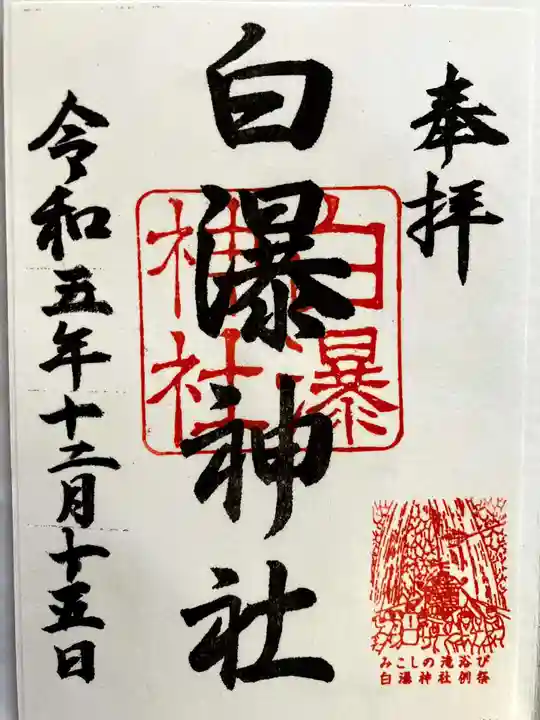 奉拝
白瀑神社
白瀑
神社
令和五年十二月十五日
みこしの滝浴び
白瀑神社例祭